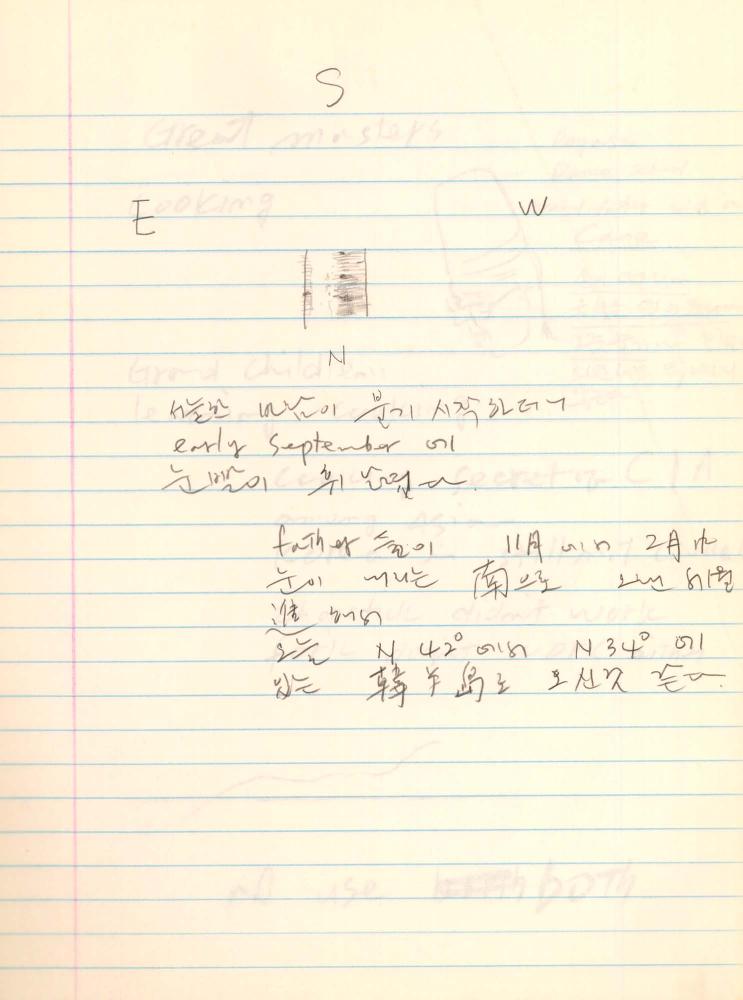 S
E
W
N
서늘한 바람이 불기 시작하더니
early September 에
눈빨이 휘 날렸다.
father 들이 11月에서 2月中
눈이 내리는 南으로 오랜 세월
進해서
오늘 N 42° 에서 N 34° 에
있는 韓半島로 오신것 같다.